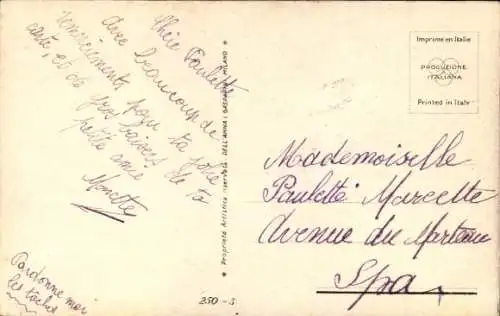 Chère Paulette
Avec beaucoup de
remerciements pour ta jolie
carte, et de gros baisers de ta
petite amie
Monette
Pardonne moi
les taches
* Proprietà Artistica riservata DELL'ANNA & GASPARINI - MILANO *
350 - S
Imprimé en Italie
PRODUZIONE
ITALIANA
Printed in Italy
Mademoiselle
Paulette Marcette
Avenue du Marteau
Spa.